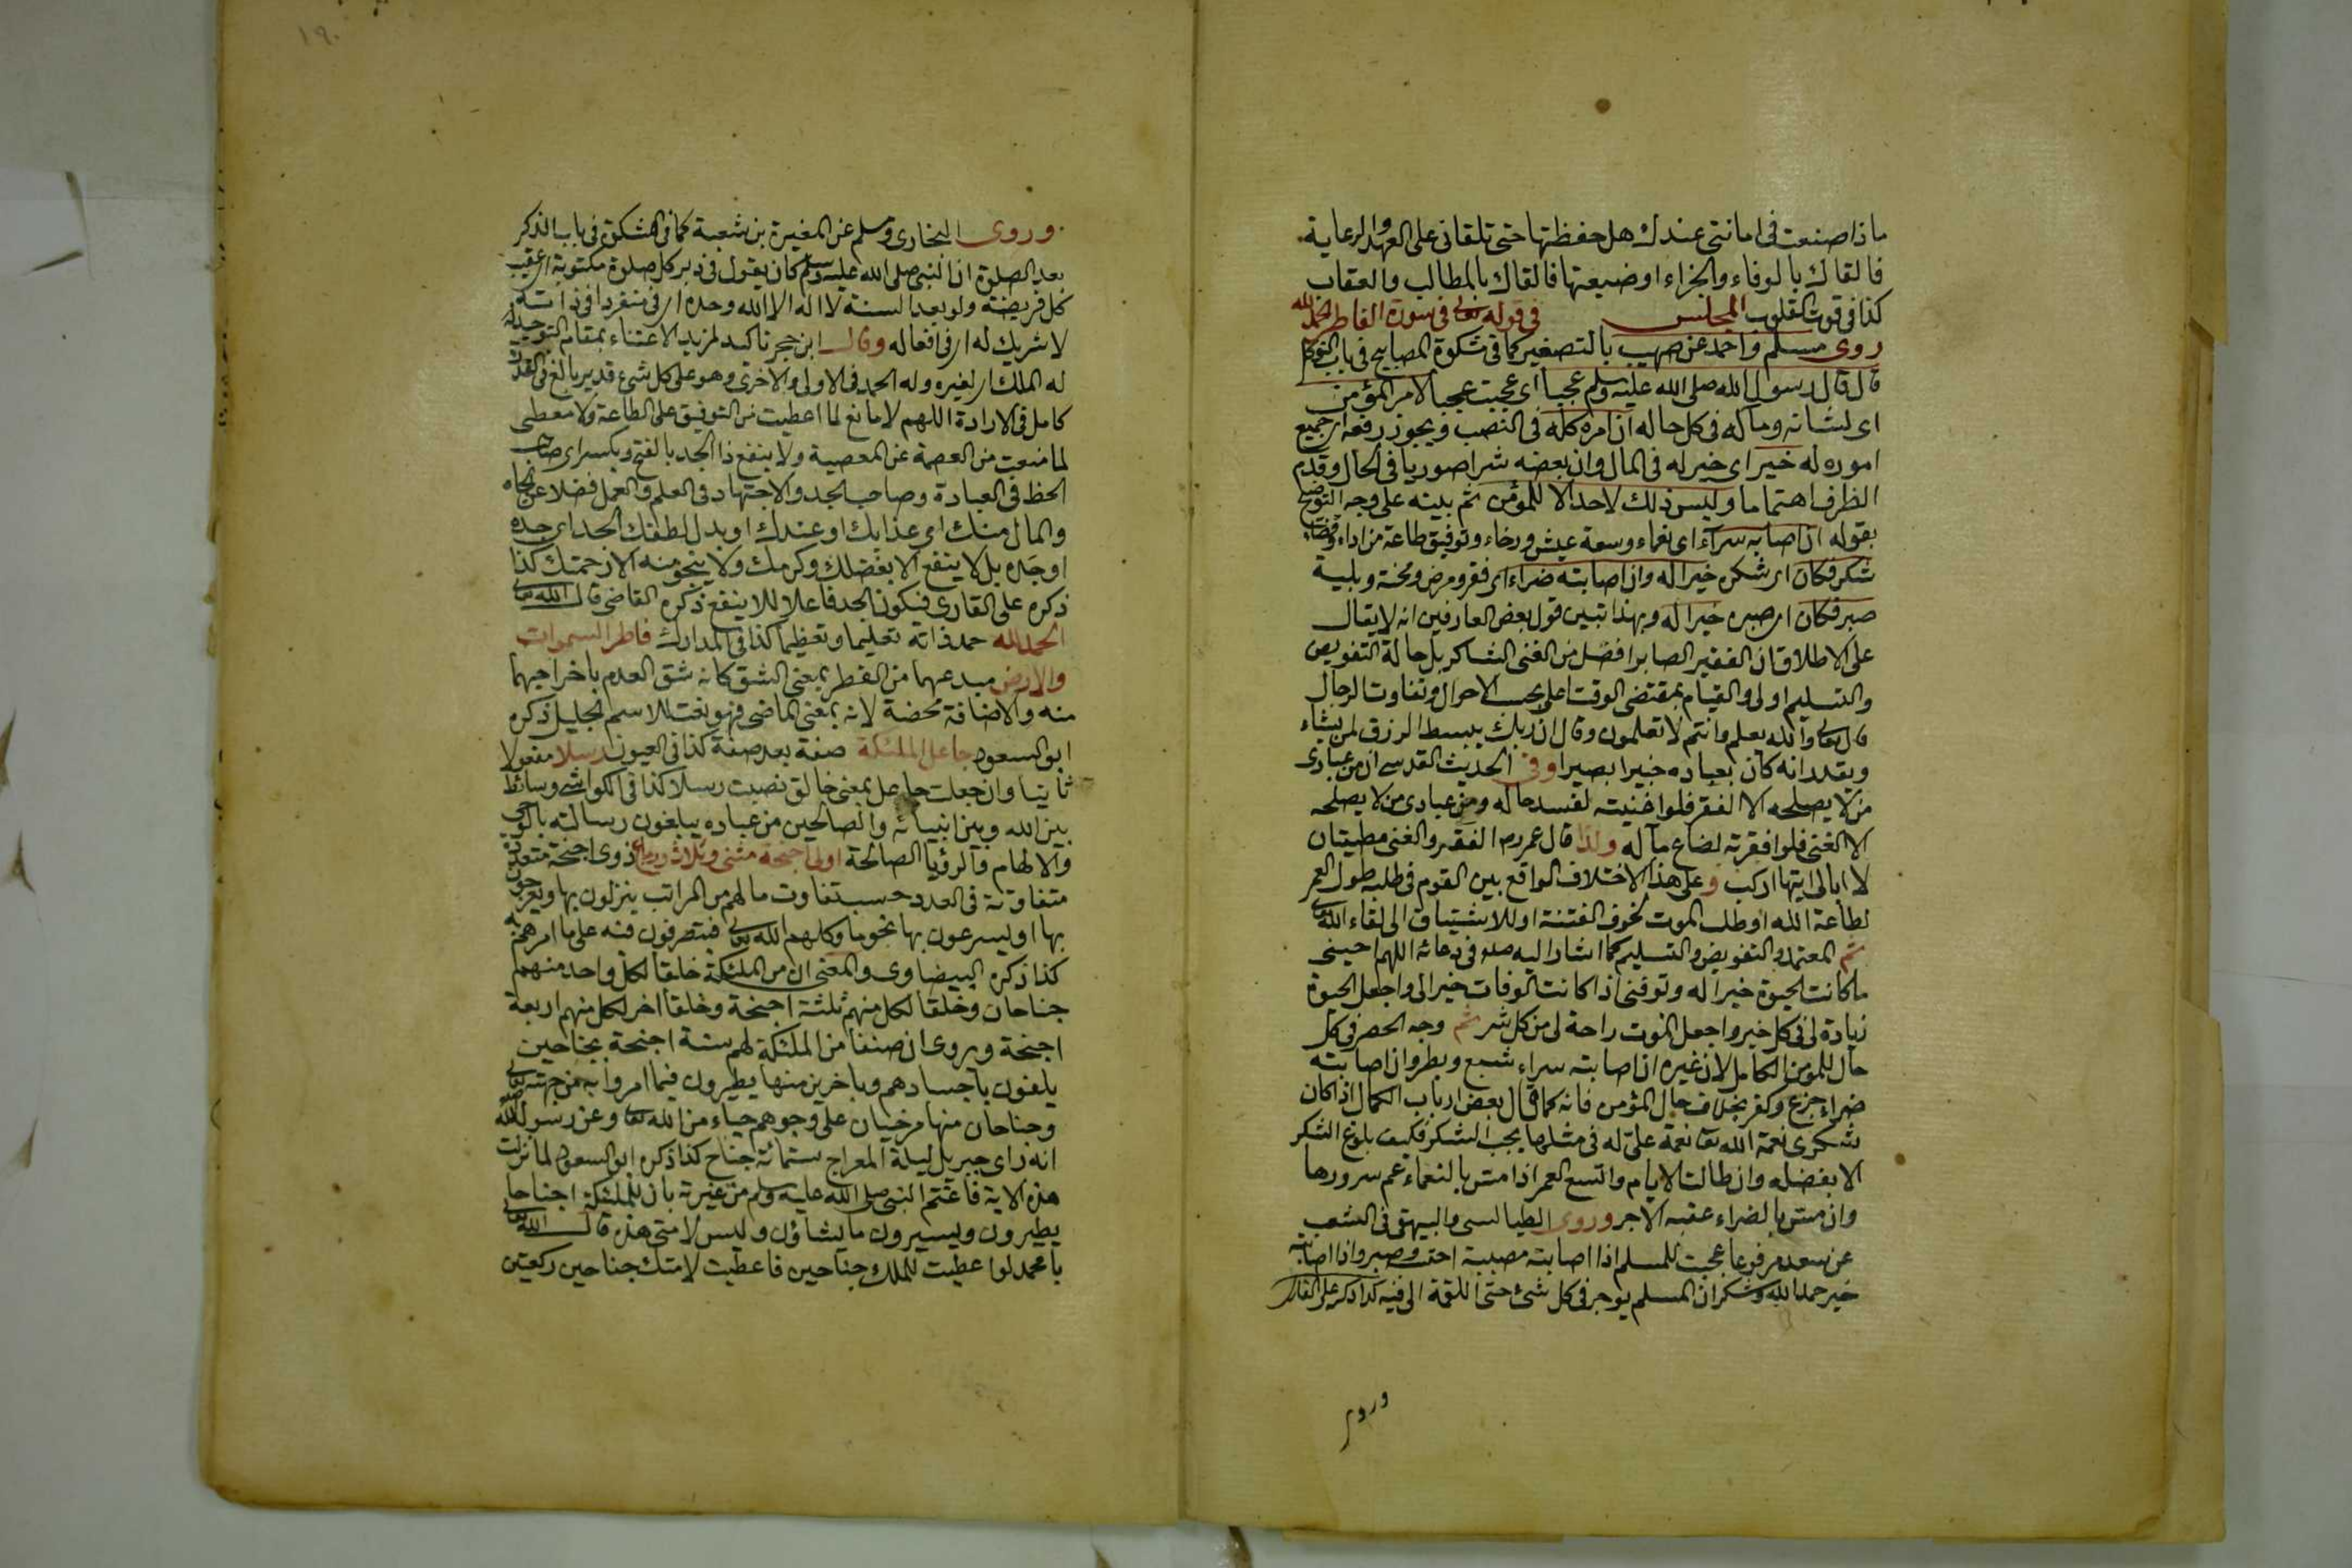 ماذا صنعت فى امانتى عندك هل حفظتها حتى تلقانى على العهد والرعاية
فالقاك بالوفاء والجزاء اوضيعتها فالقاك بالمطالب والعقاب
كذا فى قوت القلوب المجلس فى قوله تعالى فى سورة الفاطر الحمد لله
روى مسلم واحمد عن صهيب بالتصغير كما فى مشكوة المصابيح فى باب التوكل
قال قال رسول الله صلى الله عليه وسلم عجبا اى عجبت عجبا لامر المؤمن
اى لشانه وماله فى كل حاله ان امره كله فى النصب ويجوز رفعه اى جميع
اموره له خير اى خير له فى المال وان بعضه شرا صوريا فى الحال وقدم
الظرف اهتماما وليس ذلك لاحد الا للمؤمن ثم بينه على وجه التوضيح
بقوله ان اصابه سراء اى نعماء وسعة عيش ورخاء وتوفيق طاعة من اداء وقضاء
شكر فكان اى شكره خيرا له وان اصابته ضراء اى فقر ومرض ومحنة وبلية
صبر فكان اى صبره خيرا له وبهذا تبين قول بعض العارفين انه لا يقال
على الاطلاق ان الفقير الصابر افضل من الغنى الشاكر بل حالة التفويض
والتسليم اولى والقيام بمقتضى الوقت اعلى بحسب الاحوال وتفاوت الرجال
قال تعالى والله يعلم وانتم لا تعلمون وقال ان ربك يبسط الرزق لمن يشاء
ويقدر انه كان بعباده خبيرا بصيرا وفى الحديث القدسى ان من عبادى
من لا يصلحه الا الفقر فلو اغنيته لفسد حاله ومن عبادى من لا يصلحه
الا الغنى فلو افقرته لضاع ماله ولذا قال عمر رم الفقر والغنى مطيتان
لا ابالى ايتها اركب وعلى هذا الاختلاف الواقع بين القوم فى طلب طول العمر
لطاعة الله او طلب الموت لخوف الفتنة او للاشتياق الى لقاء الله تعالى
ثم المعتمد والتفويض والتسليم كما اشار اليه صلع فى دعائه اللهم احينى
ما كانت الحيوة خيرا له وتوفنى اذا كانت الوفات خيرا لى واجعل الحيوة
زيادة لى فى كل خير واجعل الموت راحة لى من كل شر ثم وجه الحصر فى كل
حال للمؤمن الكامل لان غيره ان اصابته سراء شبع وبطر وان اصابته
ضراء جزع وكفر بخلاف حال المؤمن فانه كما قال بعض ارباب الكمال اذا كان
شكرى نعمة الله تعا نعمة علىّ له فى مثلها يجب الشكر فكيف بلوغ الشكر
الا بفضله وان طالت الايام واتسع العمر اذا مس بالنعماء عم سرورها
وان مس بالضراء عقبه الاجر وروى الطيالسى والبيهقى فى الشعب
عن سعد مرفوعا عجبت للمسلم اذا اصابته مصيبة احتسب وصبر واذا اصابته
خير حمد الله وشكر ان المسلم يوجر فى كل شئ حتى اللقمة الى فيه كذا ذكره على القارى
وروى
١٩٠
وروى البخارى ومسلم عن المغيرة بن شعبة كما فى المشكوة فى باب الذكر
بعد الصلوة ان النبى صلى الله عليه وسلم كان يقول فى دبر كل صلوة مكتوبة اى عقيب
كل فريضة ولو بعد السنة لا اله الا الله وحده اى منفردا فى ذاته
لا شريك له اى فى افعاله وقال ابن حجر تاكيد لمزيد الاعتناء بمقام التوحيد
له الملك اى لغيره وله الحمد فى الاولى والاخرى وهو على كل شئ قدير بالغ فى القدرة
كامل فى الارادة اللهم لا مانع لما اعطيت من التوفيق على الطاعة ولا معطى
لما منعت من العصمة عن المعصية ولا ينفع ذا الجد بالفتح وبكسر اى صاحب
الحظ فى العبادة وصاحب الجد والاجتهاد فى العلم والعمل فضلا عن الجاه
والمال منك اى عذابك او عندك او بدل لطفك الجد اى جده
او جَده بل لا ينفع الا بفضلك وكرمك ولا ينجو منه الا رحمتك كذا
ذكره على القارى فيكون الجد فاعلا للا ينفع ذكره القاضى قال الله تعالى
الحمد لله حمد ذاته تعليما وتعظيما كذا فى المدارك فاطر السموات
والارض مبدعهما من الفطر بمعنى الشق كانه شق العدم باخراجهما
منه والاضافة محضة لانه بمعنى الماضى فهو نعت للاسم الجليل ذكره
ابو السعود جاعل الملئكة صفة بعد صفة كذا فى العيون رسلا مفعولا
ثانيا وان جعلت جاعل بمعنى خالق نصبت رسلا كذا فى الكواشى وسائط
بين الله وبين انبيائه والصالحين من عباده يبلغون رسالته بالوحى
والالهام والرؤيا الصالحة اولى اجنحة مثنى وثلاث ورباع ذوى اجنحة متعددة
متفاوتة فى العدد حسب تفاوت مالهم من المراتب ينزلون بها ويعرجون
بها او يسرعون بها نحو ما وكلهم الله تعالى فيتصرفون فيه على ما امرهم به
كذا ذكره البيضاوى والمعنى ان من الملئكة خلقا لكل واحد منهم
جناحان وخلقا لكل منهم ثلثة اجنحة وخلقا اخر لكل منهم اربعة
اجنحة ويروى ان صنفا من الملئكة لهم ستة اجنحة بجناحين
يلفون باجسادهم وباخرين منها يطيرون فيما امروا به من جهته تعالى
وجناحان منها مرخيان على وجوههم حياء من الله تعا وعن رسول الله صلعم
انه راى جبريل ليلة المعراج ستمائة جناح كذا ذكره ابو السعود لما نزلت
هذه الاية فاغتم النبى صلى الله عليه وسلم من غيرته بان للملئكة اجناحا
يطيرون ويسيرون ما يشاؤن وليس لامتى هذه قال الله تعالى
يا محمد لو اعطيت للملك جناحين فاعطيت لامتك جناحين ركعتين